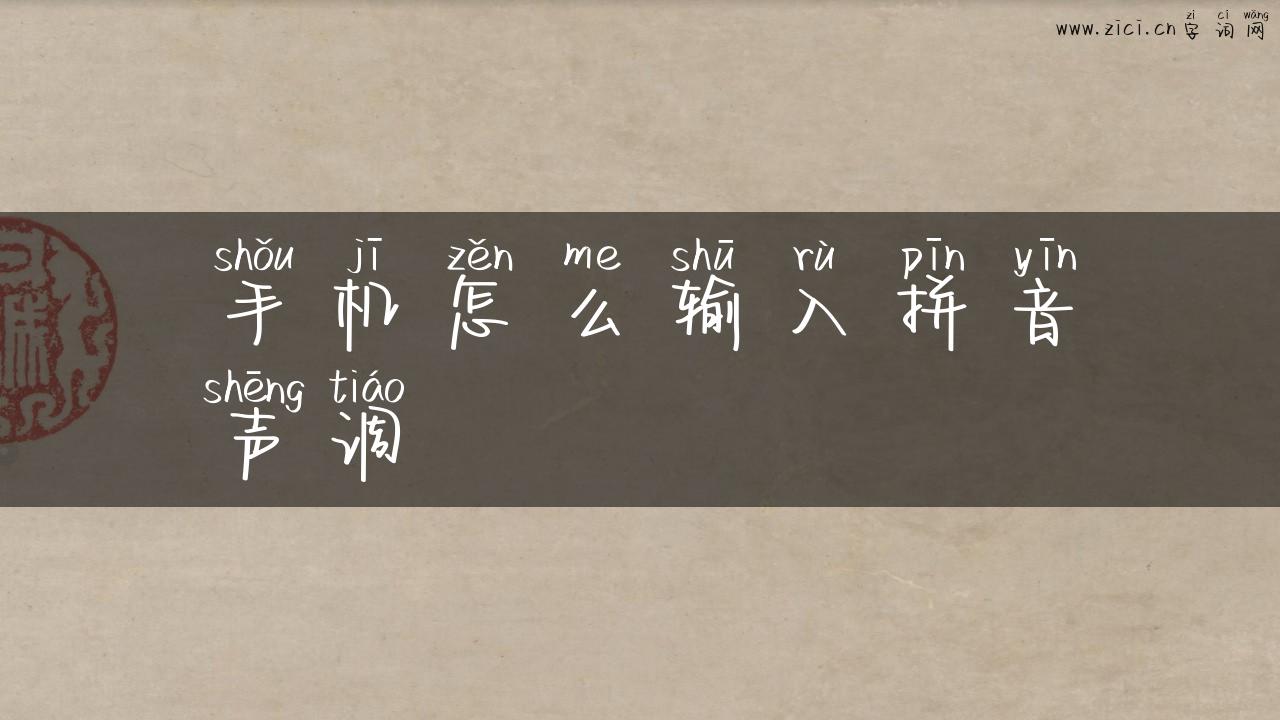 zì cí wǎng
www.zici.cn 字词网
shǒu jī zěn me shū rù pīn yīn
手机怎么输入拼音
shēng tiáo
声调